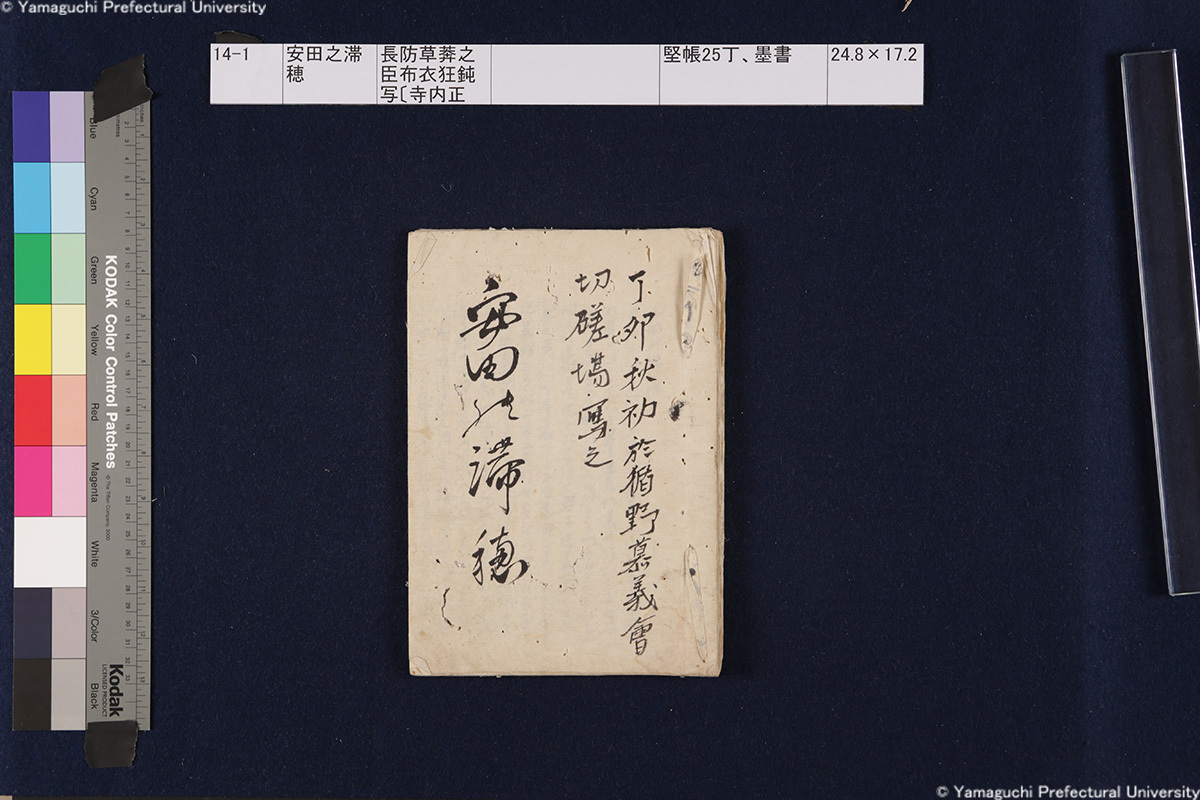 © Yamaguchi Prefectural University
14-1
安田之滞
穂
長防草莽之
臣布衣狂鈍
写〔寺内正
堅帳25丁、墨書
24.8×17.2
丁卯秋初於猶野慕義會
切磋場寫之
安田能滞穂
Blue
Cyan
Green
Yellow
Red
Magenta
White
3/Color
Black
KODAK Color Control Patches
© The Tiffen Company, 2000
Kodak
LICENSED PRODUCT
© Yamaguchi Prefectural University